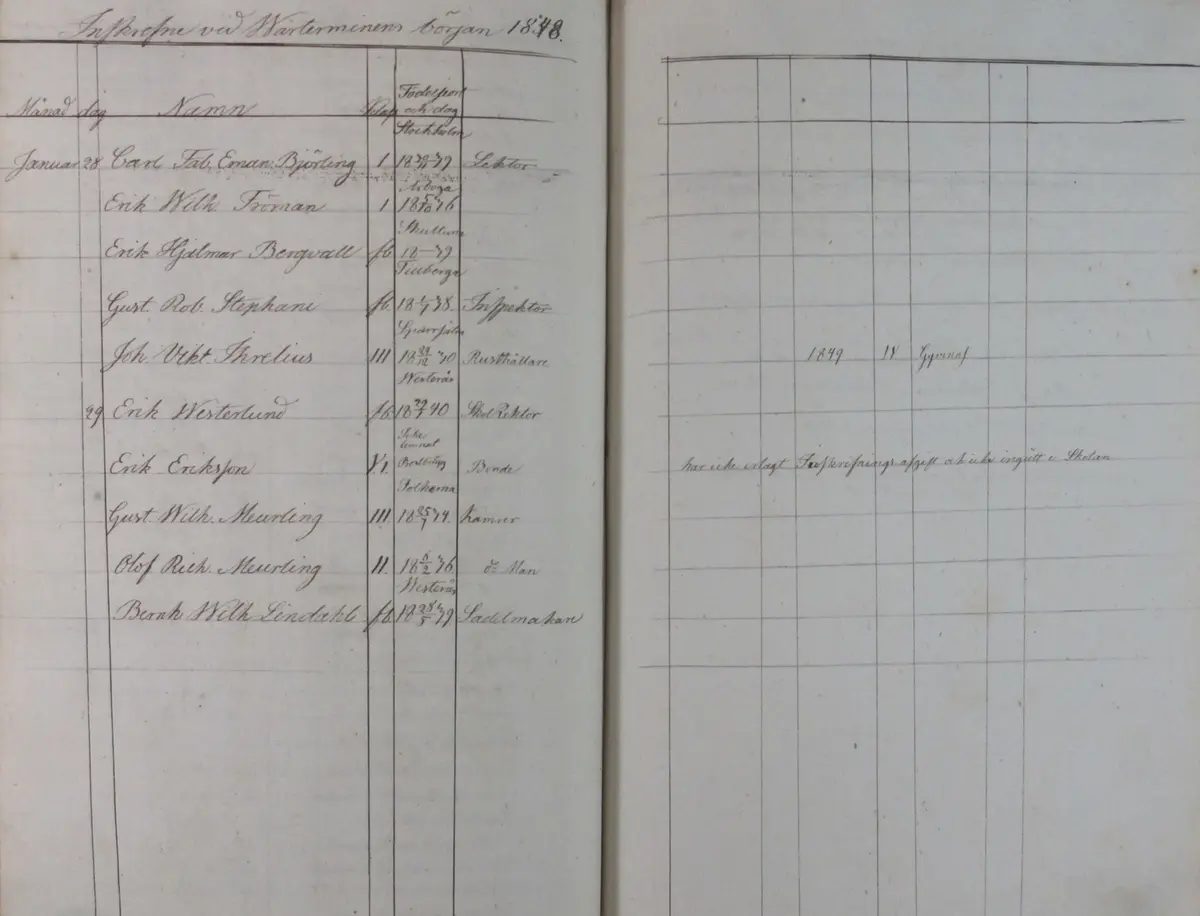 Inskrefne ved Wårterminens början 1848.
Månad dag Namn Klass Födelseort och dag
Stockholm
Januar 28 Carl Fab. Eman. Björling 1 39 Lektor
Arboga
Erik Wilh. Fröman 1 18 36
Erik Hjalmar Bergvall fb. 18 — 39
Tillberga
Gust. Rob. Stephani fb. 18 38. Inspektor
Joh. Vikt. Threlius III 18 29/12 30 Rusthållare
Westerås
29 Erik Westerlund fb. 18 40 Skol Rektor
Erik Eriksson Bonde
Gust. Wilh. Meurling III 18 25/7 34. Kamrer
Olof Rich. Meurling II. 18 6/2 36 d:o Man
Westerås
Bernh Wilh Lindahl fb. 18 39 Sadelmakare
1849 IV Gymnas
har icke erlagt Inskrifnings afgift och icke ingått i Skolan